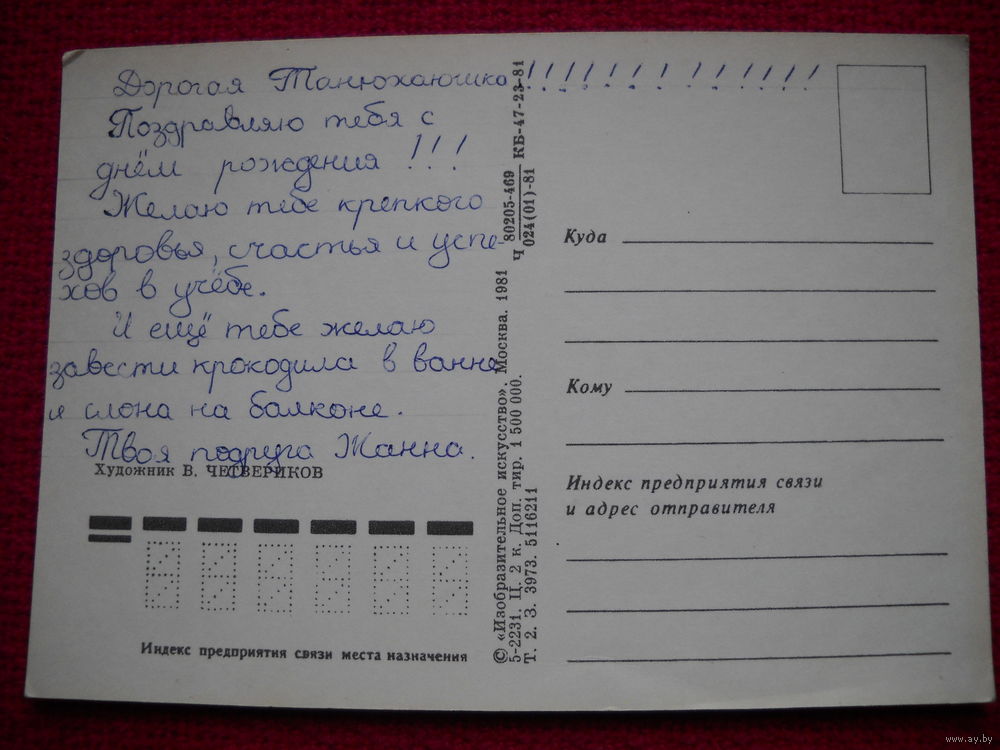 Дорогая Танюхаюшка!!!!!!!!!!!!!!
Поздравляю тебя с
днём рождения!!!
Желаю тебе крепкого
здоровья, счастья и успе-
хов в учёбе.
И ещё тебе желаю
завести крокодила в ванне
и слона на балконе.
Твоя подруга Жанна.
Художник В. ЧЕТВЕРИКОВ
Индекс предприятия связи места назначения
© «Изобразительное искусство». Москва. 1981 Ч 80205-469/024(01)-81 КБ-47-23-81
5-2231. Ц. 2 к. Доп. тир. 1 500 000.
Т. 2. З. 3973. 5116211
Куда
Кому
Индекс предприятия связи
и адрес отправителя
www.ay.by